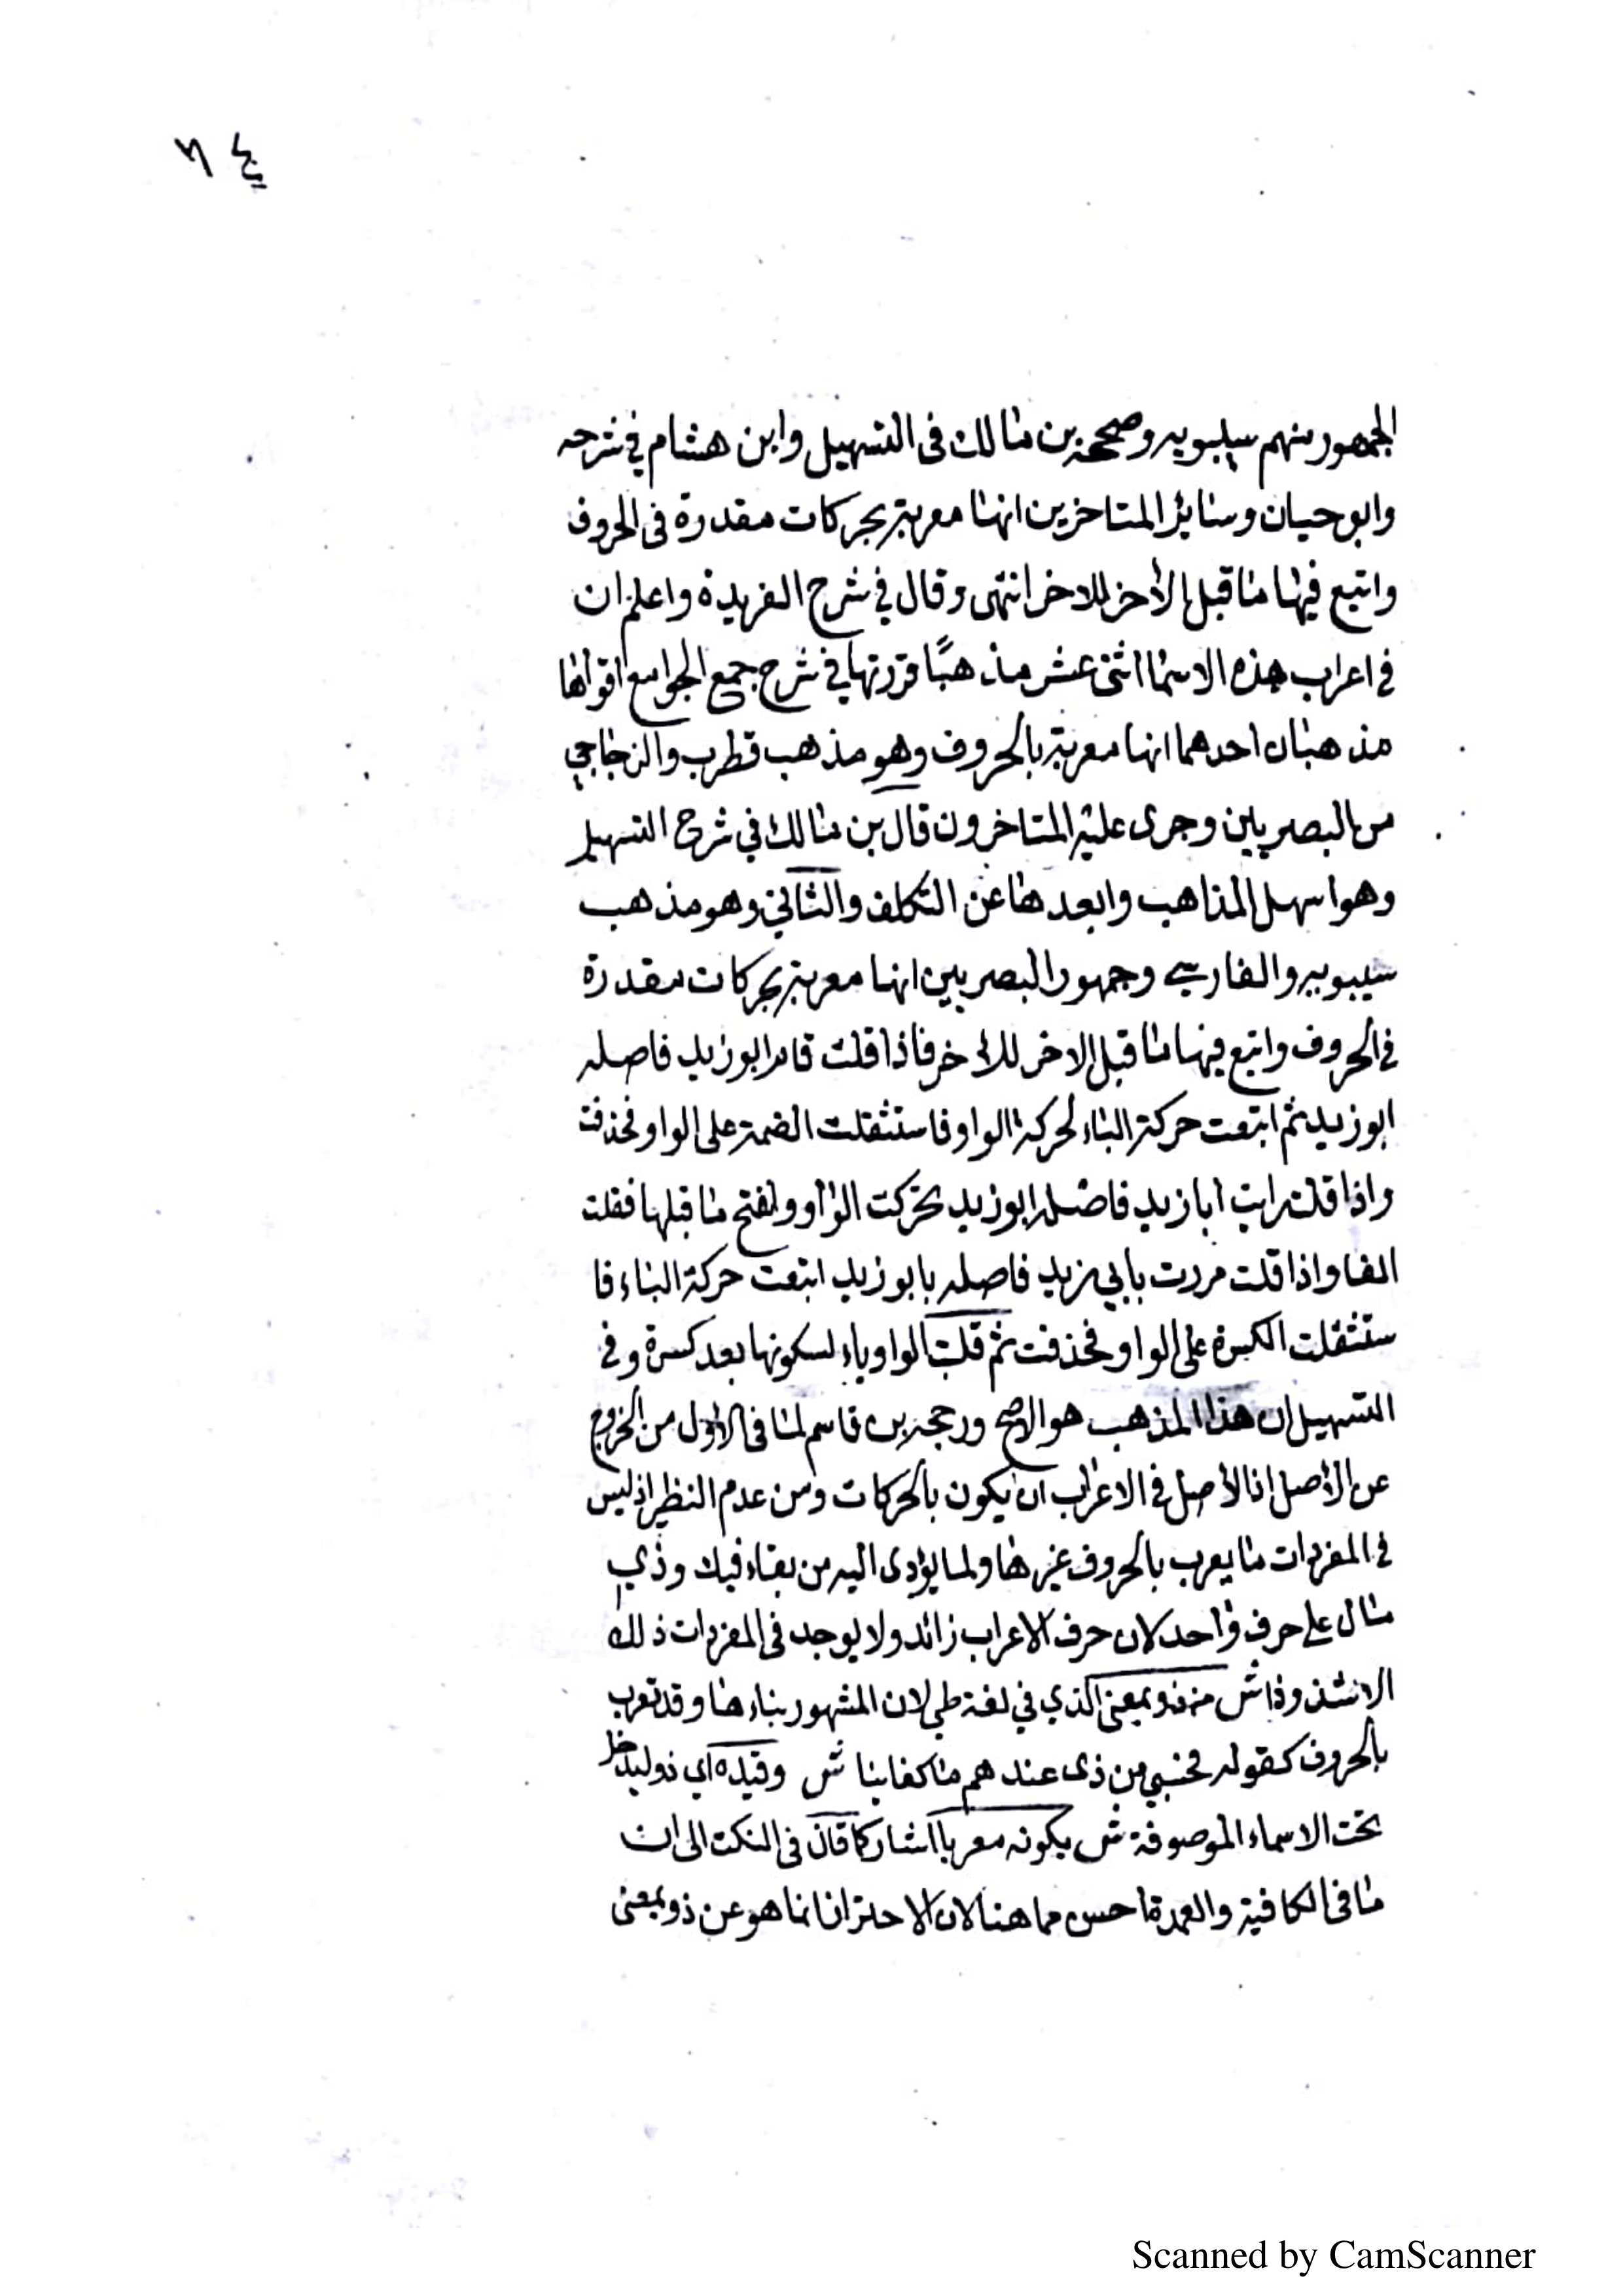 ٦٤
الجمهور منهم سيبويه وصححه بن مالك فى التسهيل وابن هشام في شرحه
وابو حيان وسائر المتاخرين انها معربة بحركات مقدرة فى الحروف
واتبع فيها ما قبل الأخر للاخر انتهى وقال في شرح الفريدة واعلم ان
في اعراب هذه الاسما اثنى عشر مذهبًا قررتها في شرح جمع الجوامع اقواها
مذهبان احدهما انها معربة بالحروف وهو مذهب قطرب والزجاجي
من البصريين وجرى عليه المتاخرون قال بن مالك في شرح التسهيل
وهو اسهل المذاهب وابعدها عن التكلف والثاني وهو مذهب
سيبويه والفارسي وجمهور البصريين انها معربة بحركات مقدرة
في الحروف واتبع فيها ما قبل الاخر للاخر فاذا قلت قام ابو زيد فاصله
ابو زيد ثم اتبعت حركة الباء لحركة الواو فاستثقلت الضمة على الواو فحذفت
واذا قلت رايت ابا زيد فاصله ابو زيد تحركت الواو وانفتح ما قبلها فقلت
الفا واذا قلت مررت بابي زيد فاصله بابو زيد اتبعت حركة الباء فا
ستثقلت الكسرة على الواو فحذفت ثم قلبت الواو ياء لسكونها بعد كسرة وفي
التسهيل ان هذا المذهب هو الاصح ورجحه بن قاسم لما فى الاول من الخروج
عن الأصل اذ الأصل في الاعراب ان يكون بالحركات ومن عدم النظير اذ ليس
في المفردات ما يعرب بالحروف غيرها ولما يؤدى اليه من بقاء فيك وذي
مال على حرف واحد لان حرف الاعراب زائد ولا يوجد فى المفردات ذلك
الا شذوذا ش من ذو بمعنى الذي في لغة طي لان المشهور بناءها وقد تعرب
بالحروف كقوله فحسبي من ذى عندهم ما كفانيا ش وقيده اي ذو ليدخل
تحت الاسماء الموصوفة ش بكونه معربا اشار كما قال فى النكت الى ان
ما فى الكافية والعمدة احسن مما هنا لان الاحتراز انما هو عن ذو بمعنى
Scanned by CamScanner